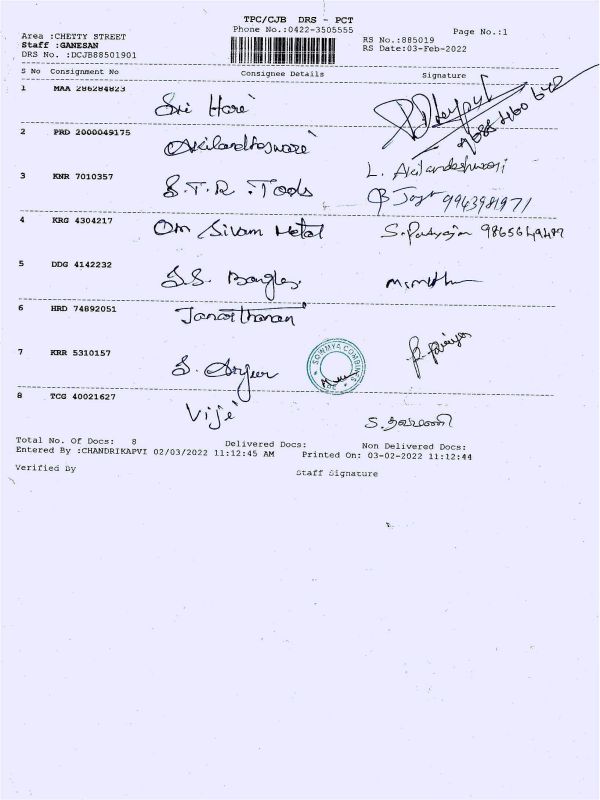 TPC/CJB DRS - PCT
Phone No.:0422-3505555 Page No.:1
Area :CHETTY STREET RS No.:885019
Staff :GANESAN RS Date:03-Feb-2022
DRS No. :DCJB88501901
S No Consignment No Consignee Details Signature
1 MAA 286284823 Sri Hare 9688460642
2 PRD 2000049175 Akilandheswari L. Akilandeshwari
3 KNR 7010357 S.T.R. Tools 9943981971
4 KRG 4304217 Om Sivam Metal
5 DDG 4142232 S.S. Bangles.
6 HRD 74892051 Janarthanan
7 KRR 5310157 SOWMYA COMBINES
8 TCG 40021627 Viji
Total No. Of Docs: 8 Delivered Docs: Non Delivered Docs:
Entered By :CHANDRIKAPVI 02/03/2022 11:12:45 AM Printed On: 03-02-2022 11:12:44
Verified By Staff Signature